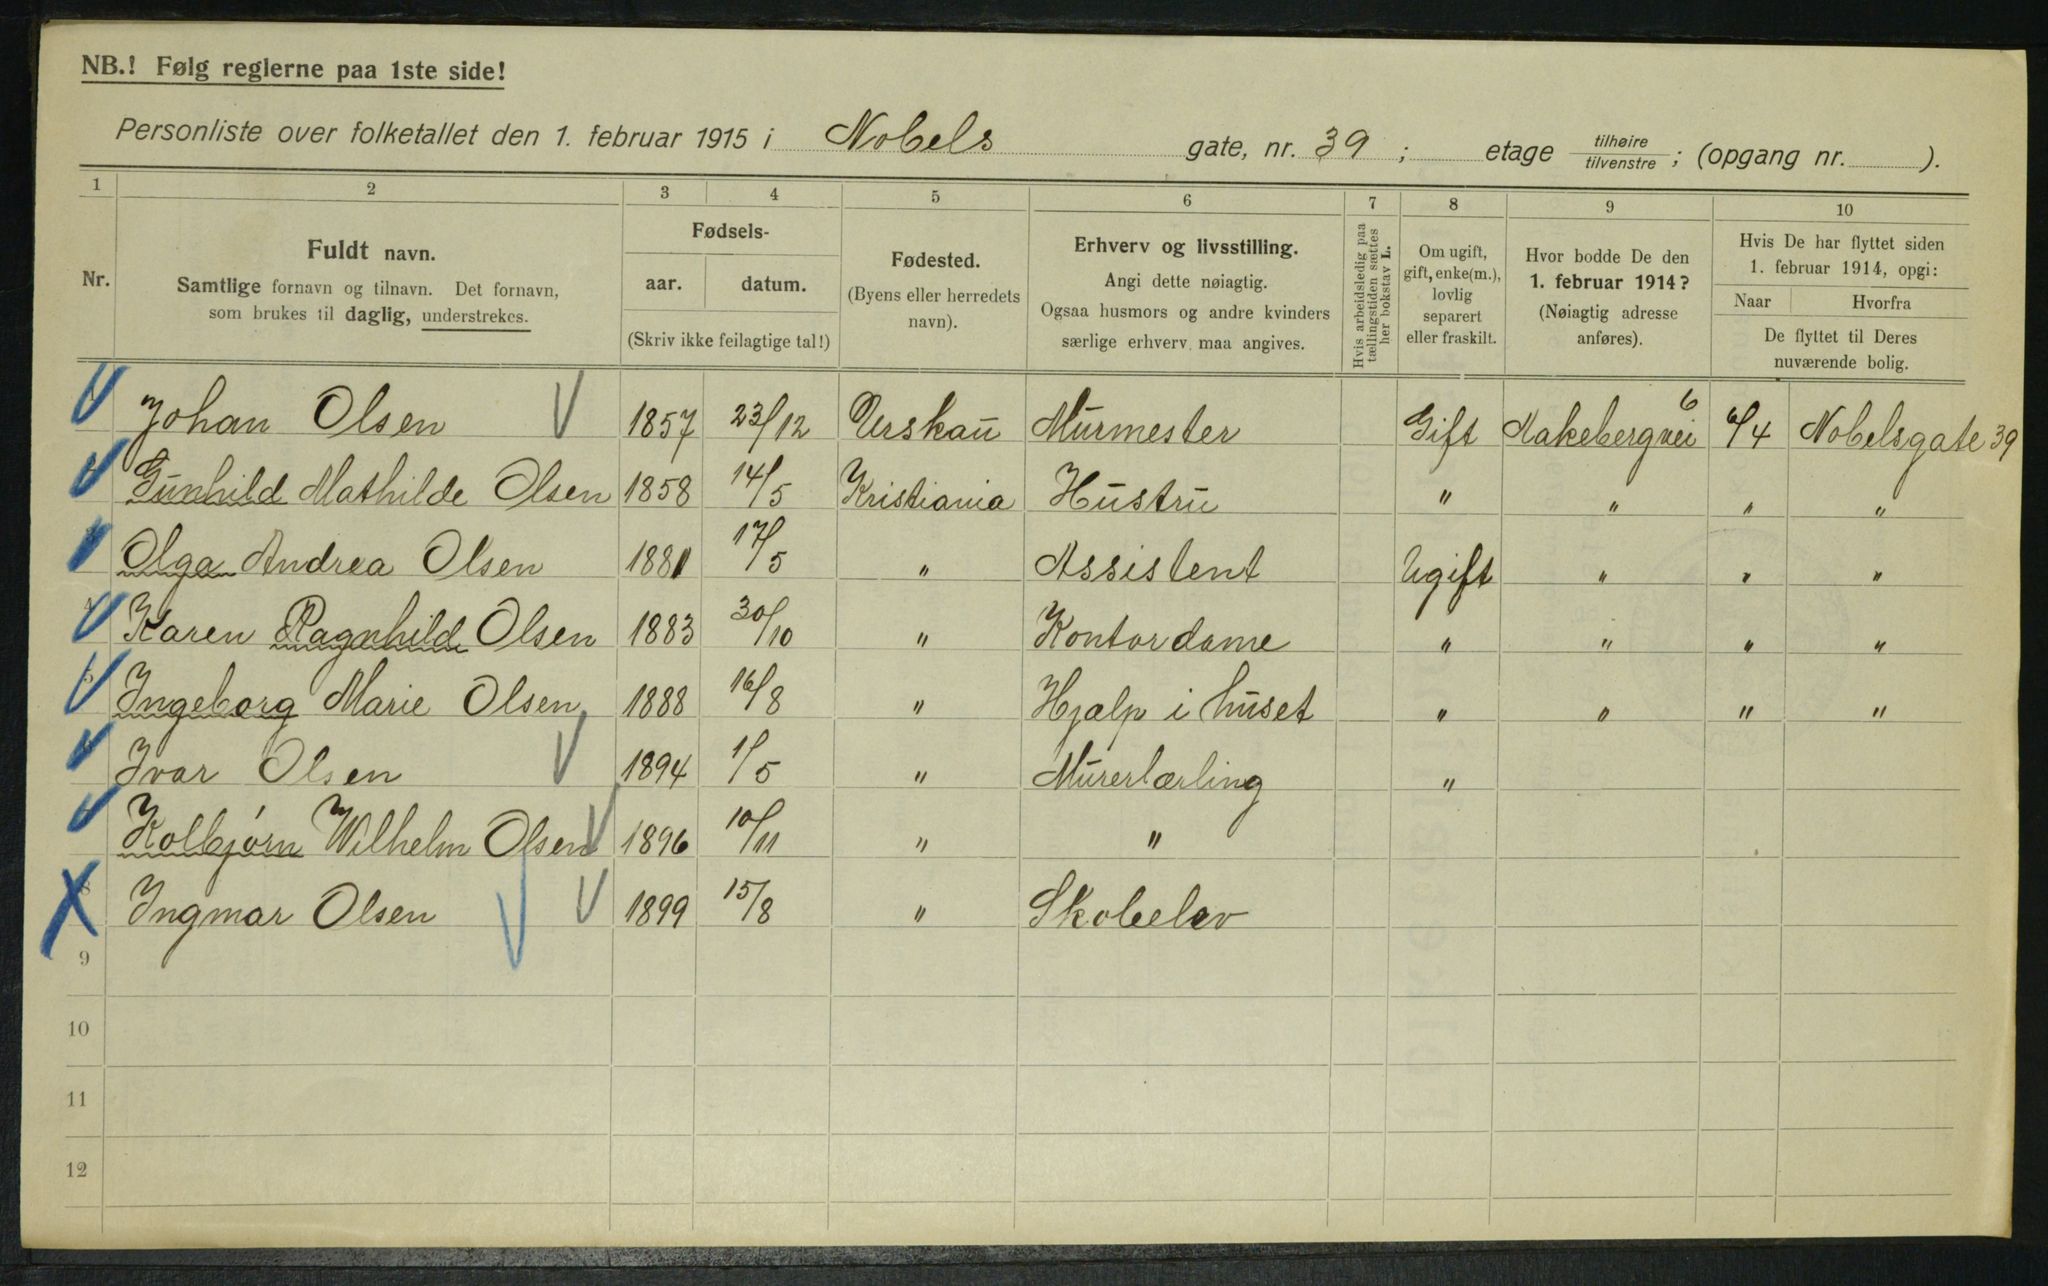 NB.! Følg reglerne paa 1ste side!
Personliste over folketallet den 1. februar 1915 i Nobels gate, nr. 39 ; etage tilhøire tilvenstre ; (opgang nr. ).
1 2 3 4 5 6 7 8 9 10
Nr.
Fuldt navn.
Samtlige fornavn og tilnavn. Det fornavn,
som brukes til daglig, understrekes.
Fødsels-
aar. datum.
(Skriv ikke feilagtige tal!)
Fødested.
(Byens eller herredets
navn).
Erhverv og livsstilling.
Angi dette nøiagtig.
Ogsaa husmors og andre kvinders
særlige erhverv maa angives.
Hvis arbeidsledig paa
tællingstiden sættes
her bokstav L.
Om ugift,
gift, enke(m.),
lovlig
separert
eller fraskilt.
Hvor bodde De den
1. februar 1914?
(Nøiagtig adresse
anføres).
Hvis De har flyttet siden
1. februar 1914, opgi:
Naar Hvorfra
De flyttet til Deres
nuværende bolig.
Johan Olsen 1857 23/12 Urskau Murmester Gift Aakebergvei 6 6/4 Nobelsgate 39
Gunhild Mathilde Olsen 1858 14/5 Kristiania Hustru " " " "
Olga Andrea Olsen 1881 17/5 " Assistent Ugift " " "
Karen Ragnhild Olsen 1883 30/10 " Kontordame " " " "
5 Ingeborg Marie Olsen 1888 16/8 " Hjælp i huset " " " "
Ivar Olsen 1894 1/5 " Murerlærling "
Kolbjørn Wilhelm Olsen 1896 10/11 " "
8 Ingmar Olsen 1899 15/8 " Skoleelev
9
10
11
12